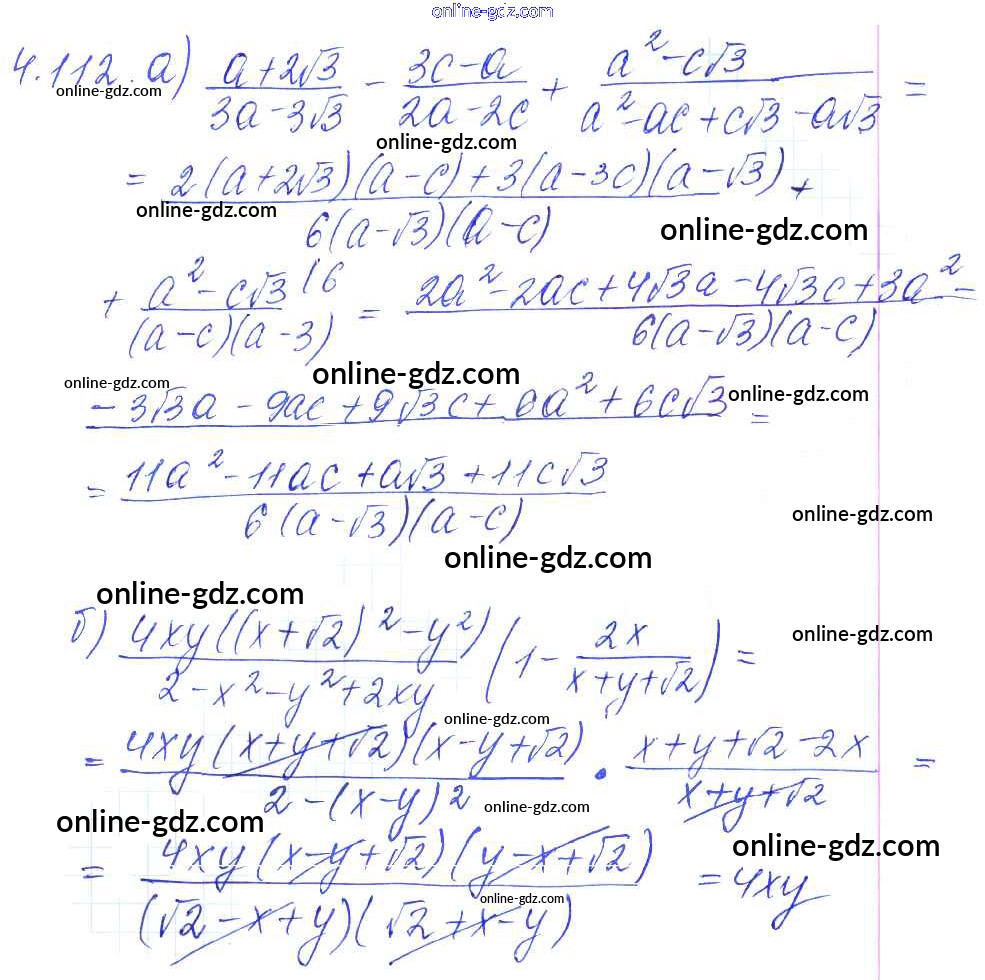 online-gdz.com
4.112. а) (a+2√3)/(3a-3√3) - (3c-a)/(2a-2c) + (a²-c√3)/(a²-ac+c√3-a√3) =
online-gdz.com
online-gdz.com
= (2(a+2√3)(a-c)+3(a-3c)(a-√3))/(6(a-√3)(a-c)) +
online-gdz.com
online-gdz.com
+ (a²-c√3 |6)/((a-c)(a-3)) = (2a²-2ac+4√3a-4√3c+3a²-)/(6(a-√3)(a-c))
online-gdz.com
online-gdz.com
online-gdz.com
-3√3a-9ac+9√3c+6a²+6c√3 =
= (11a²-11ac+a√3+11c√3)/(6(a-√3)(a-c))
online-gdz.com
online-gdz.com
online-gdz.com
б) (4xy((x+√2)²-y²))/(2-x²-y²+2xy) (1-(2x)/(x+y+√2)) =
online-gdz.com
online-gdz.com
= (4xy(x+y+√2)(x-y+√2))/(2-(x-y)²) · (x+y+√2-2x)/(x+y+√2) =
online-gdz.com
online-gdz.com
online-gdz.com
= (4xy(x-y+√2)(y-x+√2))/((√2-x+y)(√2+x-y)) = 4xy
online-gdz.com